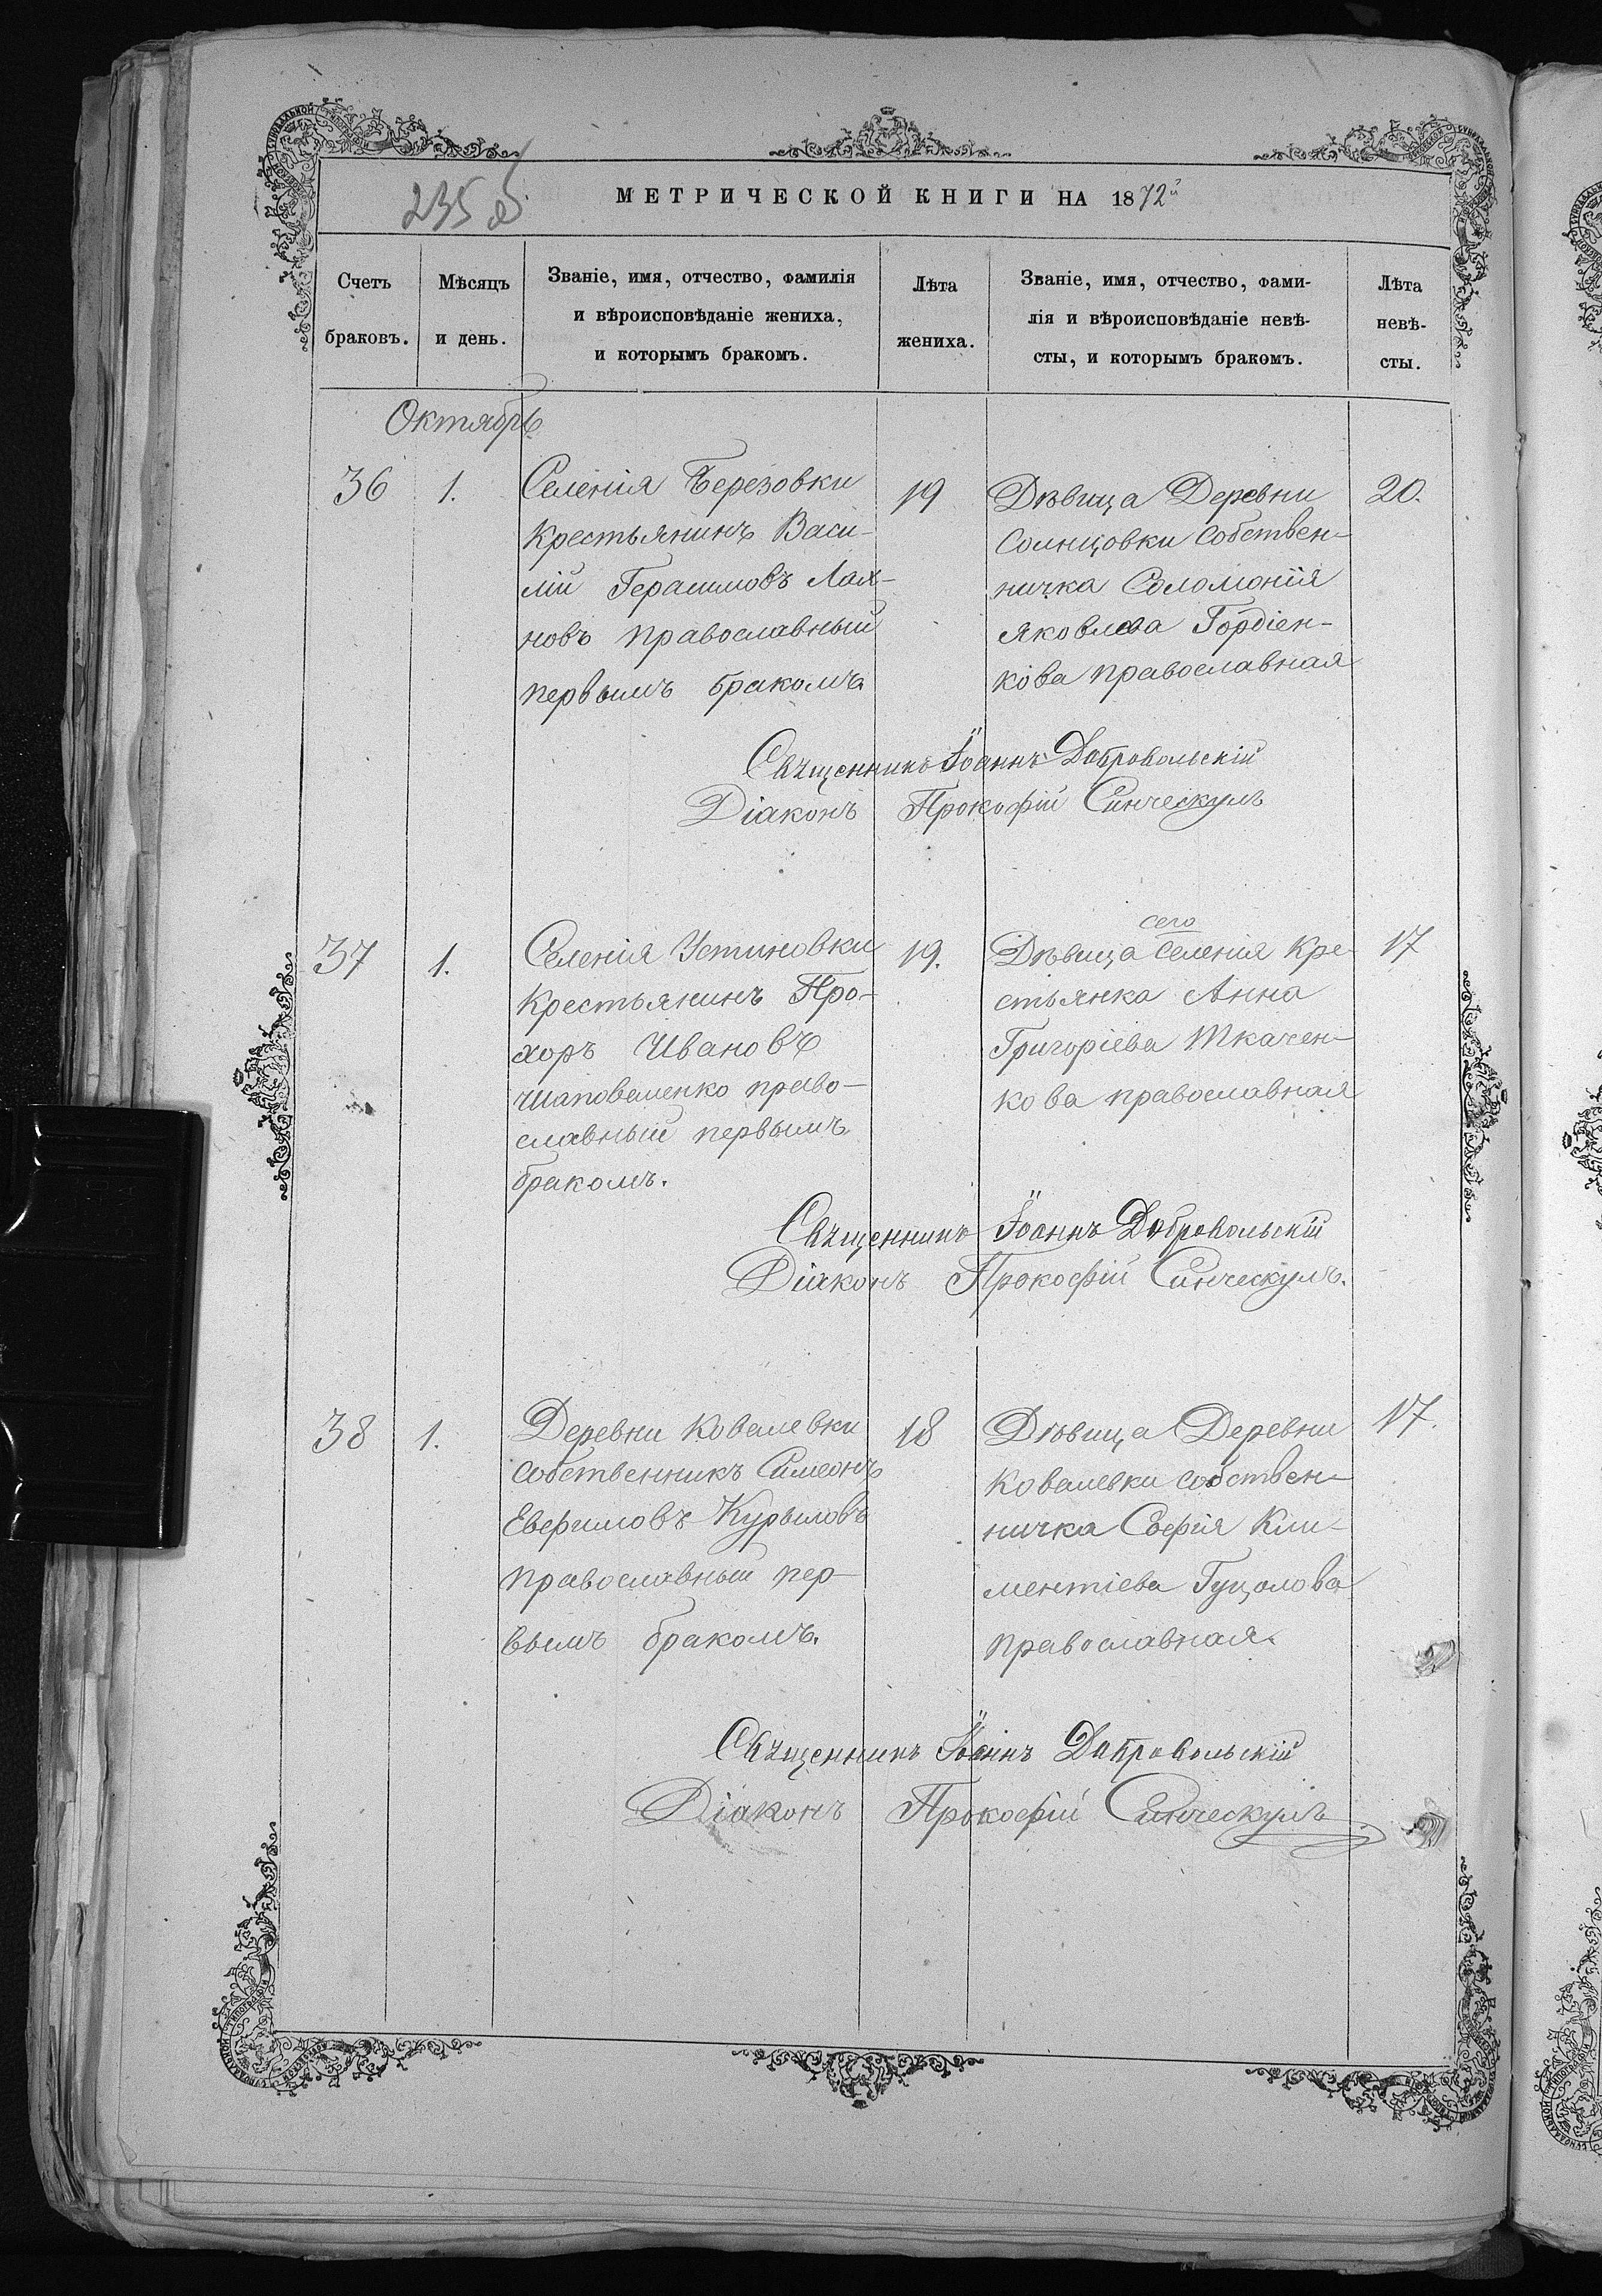 235 об
МЕТРИЧЕСКОЙ КНИГИ НА 1872й
Счетъ браковъ.
Мѣсяцъ и день.
Званіе, имя, отчество, фамилія
и вѣроисповѣданіе жениха,
и которымъ бракомъ.
Лѣта
жениха.
Званіе, имя, отчество, фами-
лія и вѣроисповѣданіе невѣ-
сты, и которымъ бракомъ.
Лѣта
невѣ-
сты.
Октябрь
36
1.
Селенія Березовки
крестьянинъ Васи-
лій Герасимовъ Лах-
новъ православный
первымъ бракомъ
19
Дѣвица Деревни
Солнцовки собствен-
ничка Соломонія
Яковлева Гордіен-
кова православная
20.
Священникъ Іоаннъ Добровольскій
Діаконъ Прокофій
37
1.
Селенія Устиновки
крестьянинъ Про-
хоръ Ивановъ
Шаповаленко право-
славный первымъ
бракомъ.
19.
сего
Дѣвица селенія кре-
стьянка Анна
Григоріева Ткачен-
кова православная
17
Священникъ Іоаннъ Добровольскій
Діаконъ Прокофій
38
1.
Деревни Ковалевки
собственникъ Симеонъ
Евфимовъ Курыловъ
православный пер-
вымъ бракомъ.
18
Дѣвица Деревни
Ковалевки собствен-
ничка Софія Кли-
ментіева Гуцолова
православная.
17.
Священникъ Іоаннъ Добровольскій
Діаконъ Прокофій